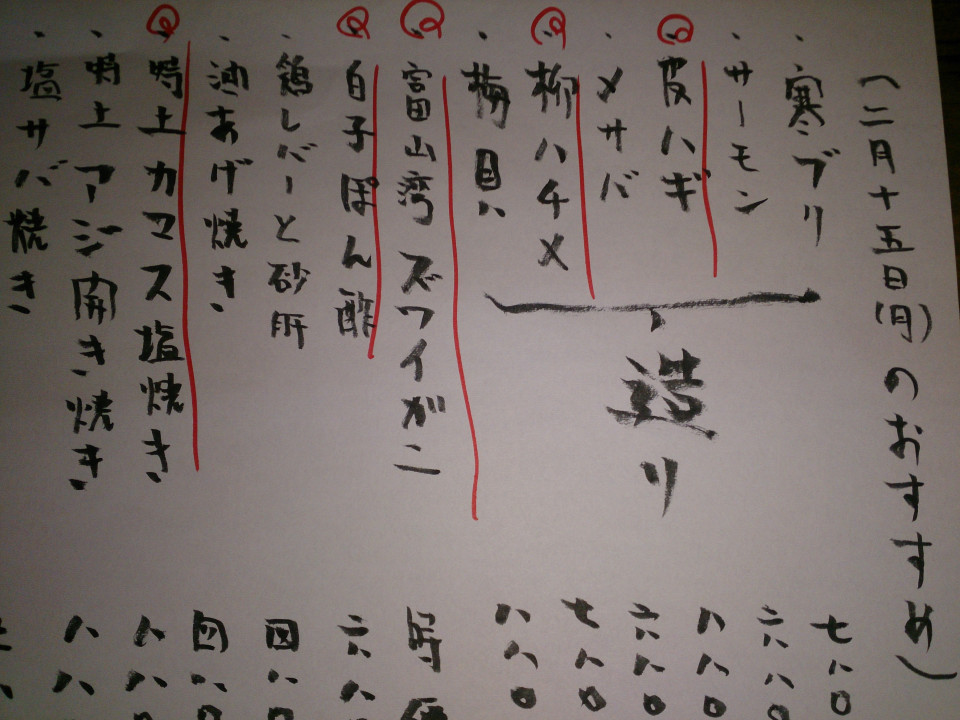 (二月十五日(月)のおすすめ)
・寒ブリ 七八0
・サーモン 六八0
・皮ハギ 八八0
・〆サバ 六八0
・柳ハチメ 七八0
・梅貝 八八0
造り
・富山湾ズワイガニ 時価
・白子ぽん酢 六八0
・鶏レバーと砂肝 四八0
・油あげ焼き 四八0
・特上カマス塩焼き 八八0
・特上アジ開き焼き 八八
・塩サバ焼き